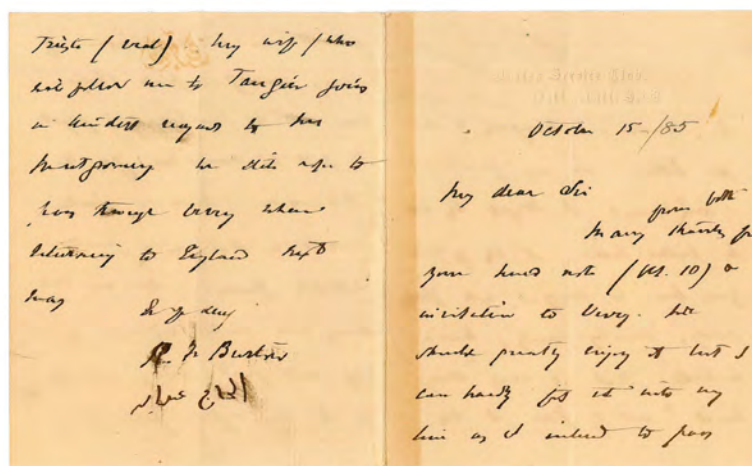 my wife (who
follow me to Tangier joins
in kindest regards to Mrs
Montgomery we still hope to
pass through Vevey when
returning to England next
May
R F Burton
الحاج عبدالله
October 15 /85
My dear Sir
from both
Many thanks
your kind note (Oct. 10) &
invitation to Vevey. We
should greatly enjoy it but I
can hardly fit it into my
time as I intend to pass